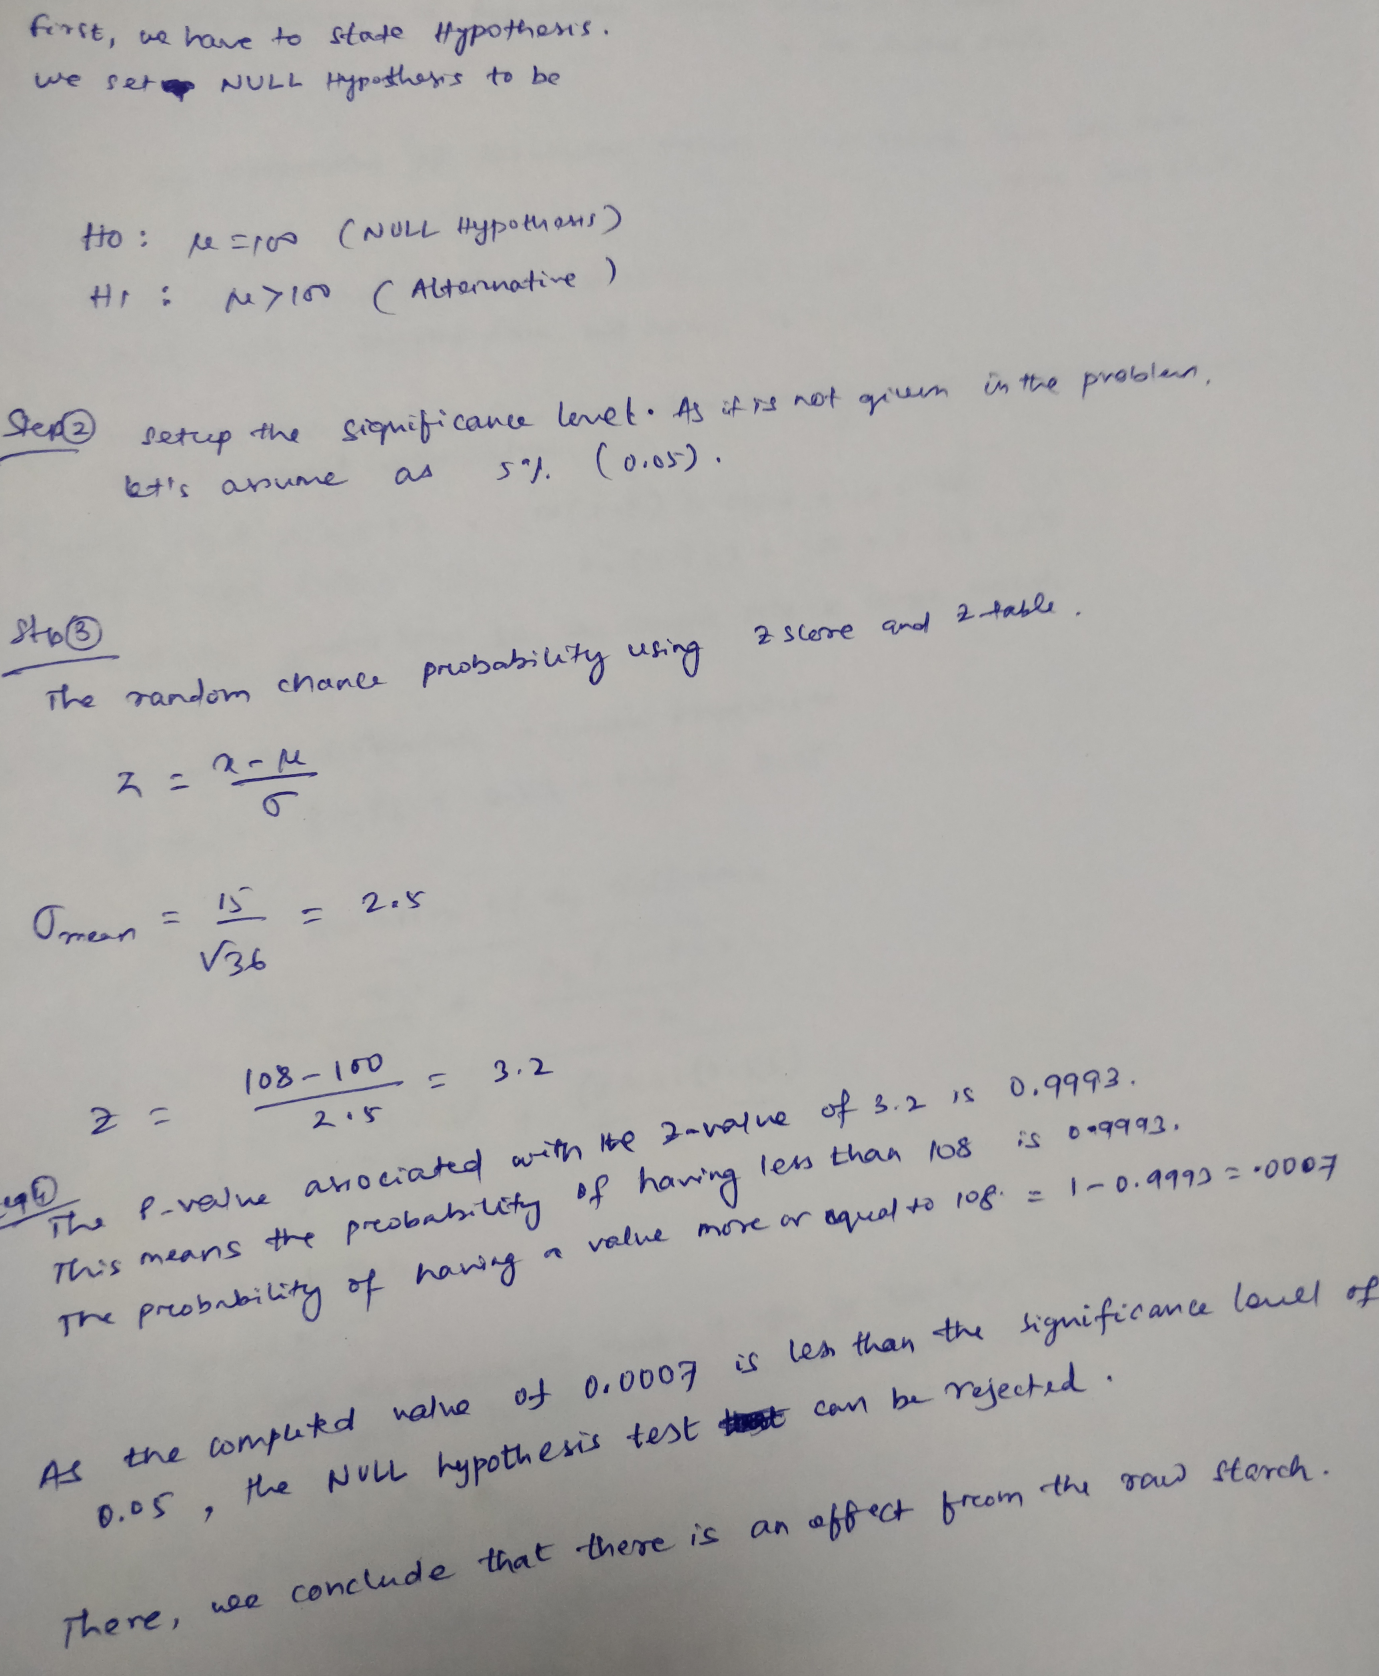 First, we have to state Hypothesis.
we set NULL Hypothesis to be
H0 : μ = 100 (NULL Hypothesis)
H1 : μ > 100 (Alternative)
Step ② setup the significance level. As it is not given in the problem,
let's assume as 5% (0.05).
Step ③
The random chance probability using z score and z table.
z = x - μ / σ
σmean = 15 / √36 = 2.5
z = 108 - 100 / 2.5 = 3.2
ep ④ The P-value associated with the z-value of 3.2 is 0.9993.
This means the probability of having less than 108 is 0.9993.
The probability of having a value more or equal to 108. = 1 - 0.9993 = .0007
As the computed value of 0.0007 is less than the significance level of
0.05, the NULL hypothesis test can be rejected.
There, we conclude that there is an effect from the raw starch.